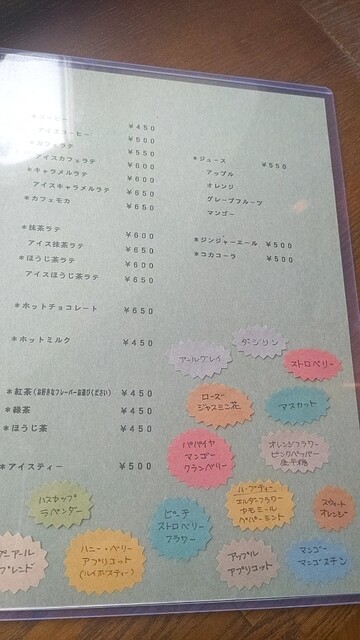 *コーヒー ¥450
アイスコーヒー ¥500
*カフェラテ ¥550
アイスカフェラテ ¥600
*キャラメルラテ ¥600
アイスキャラメルラテ ¥650
*カフェモカ ¥650
*抹茶ラテ ¥600
アイス抹茶ラテ ¥650
*ほうじ茶ラテ ¥600
アイスほうじ茶ラテ ¥650
*ホットチョコレート ¥650
*ホットミルク ¥450
*紅茶(お好きなフレーバーお選びください) ¥450
*緑茶 ¥450
*ほうじ茶 ¥450
*アイスティー ¥500
*ジュース ¥550
アップル
オレンジ
グレープフルーツ
マンゴー
*ジンジャーエール ¥500
*コカコーラ ¥500
ダージリン
アールグレイ
ストロベリー
ローズ
ジャスミン花
マスカット
パパイヤ
マンゴー
クランベリー
オレンジフラワー
ピンクペッパー
金平糖
ハスカップ
ラベンダー
ピーチ
ストロベリー
フラワー
ハーブティー
エルダーフラワー
カモミール
ペパーミント
スウィート
オレンジ
アール
ブレンド
ハニー・ベリー
アプリコット
(ルイボスティー)
アップル
アプリコット
マンゴー
マンゴスチン